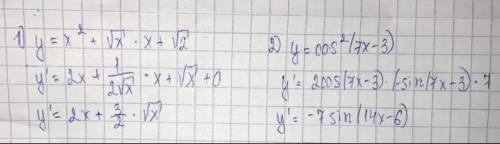 1) y = x² + √x · x + √2
y' = 2x + 1/(2√x) · x + √x + 0
y' = 2x + 3/2 · √x
2) y = cos²(7x-3)
y' = 2cos(7x-3) · (-sin(7x-3) · 7
y' = -7 sin(14x-6)